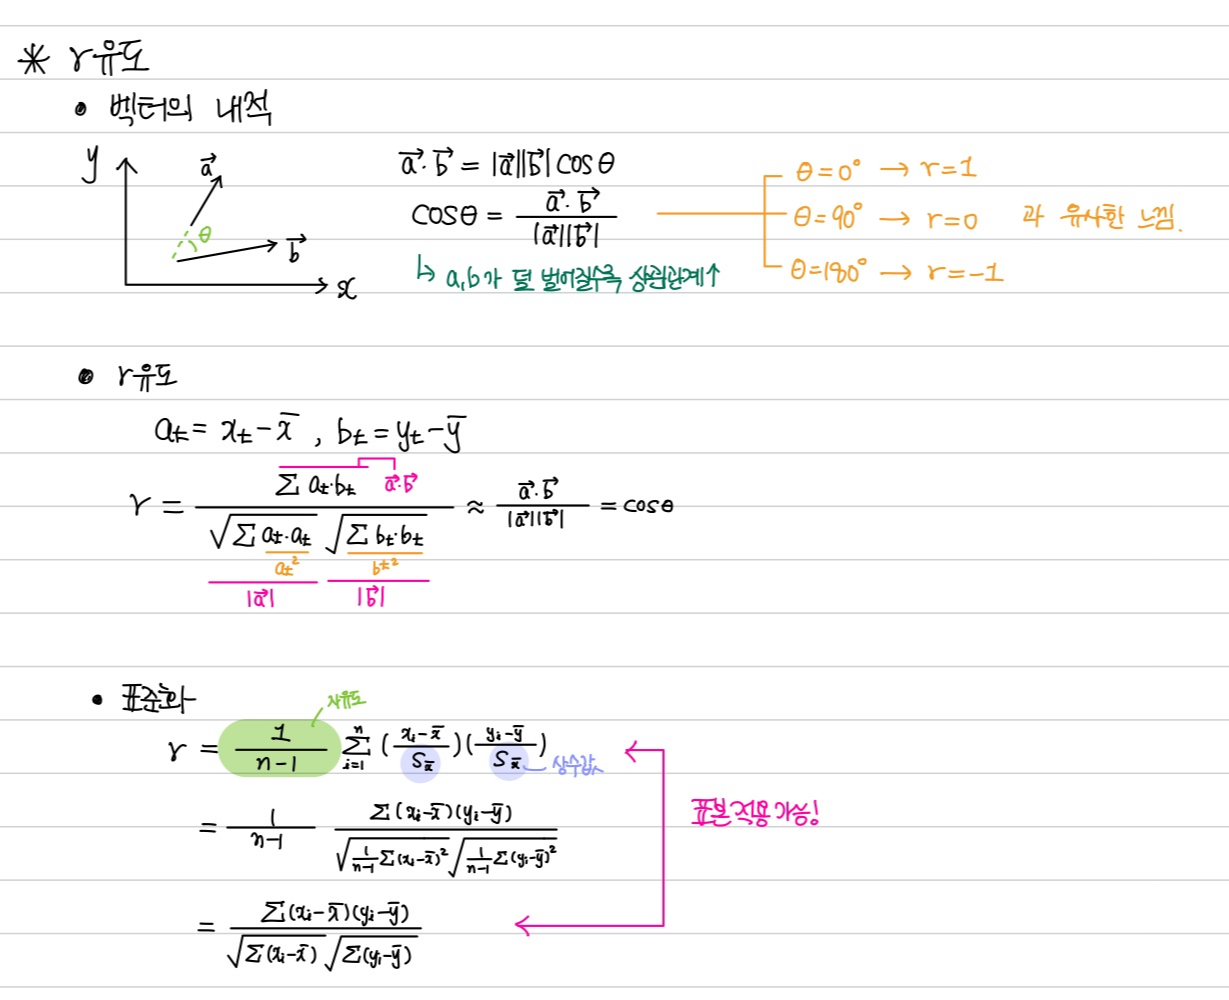 * r유도
• 벡터의 내적
y
a⃗
θ
b⃗
x
a⃗·b⃗ = |a⃗||b⃗| cosθ
cosθ = a⃗·b⃗ / |a⃗||b⃗|
↳ a,b가 덜 벌어질수록 상관관계↑
θ=0° → r=1
θ=90° → r=0 과 유사한 느낌.
θ=180° → r=-1
• r유도
a_t = x_t - x̄ , b_t = y_t - ȳ
r = Σ a_t·b_t / √(Σ a_t·a_t) √(Σ b_t·b_t) ≈ a⃗·b⃗ / |a⃗||b⃗| = cosθ
a⃗·b⃗
a_t² b_t²
|a⃗| |b⃗|
• 표준화
자유도
r = 1/(n-1) Σ_{i=1}^{n} ((x_i - x̄)/S_x̄)((y_i - ȳ)/S_x̄) 상수값
= 1/(n-1) Σ(x_i - x̄)(y_i - ȳ) / √(1/(n-1) Σ(x_i - x̄)²) √(1/(n-1) Σ(y_i - ȳ)²)
표본적용가능!
= Σ(x_i - x̄)(y_i - ȳ) / √(Σ(x_i - x̄)) √(Σ(y_i - ȳ))